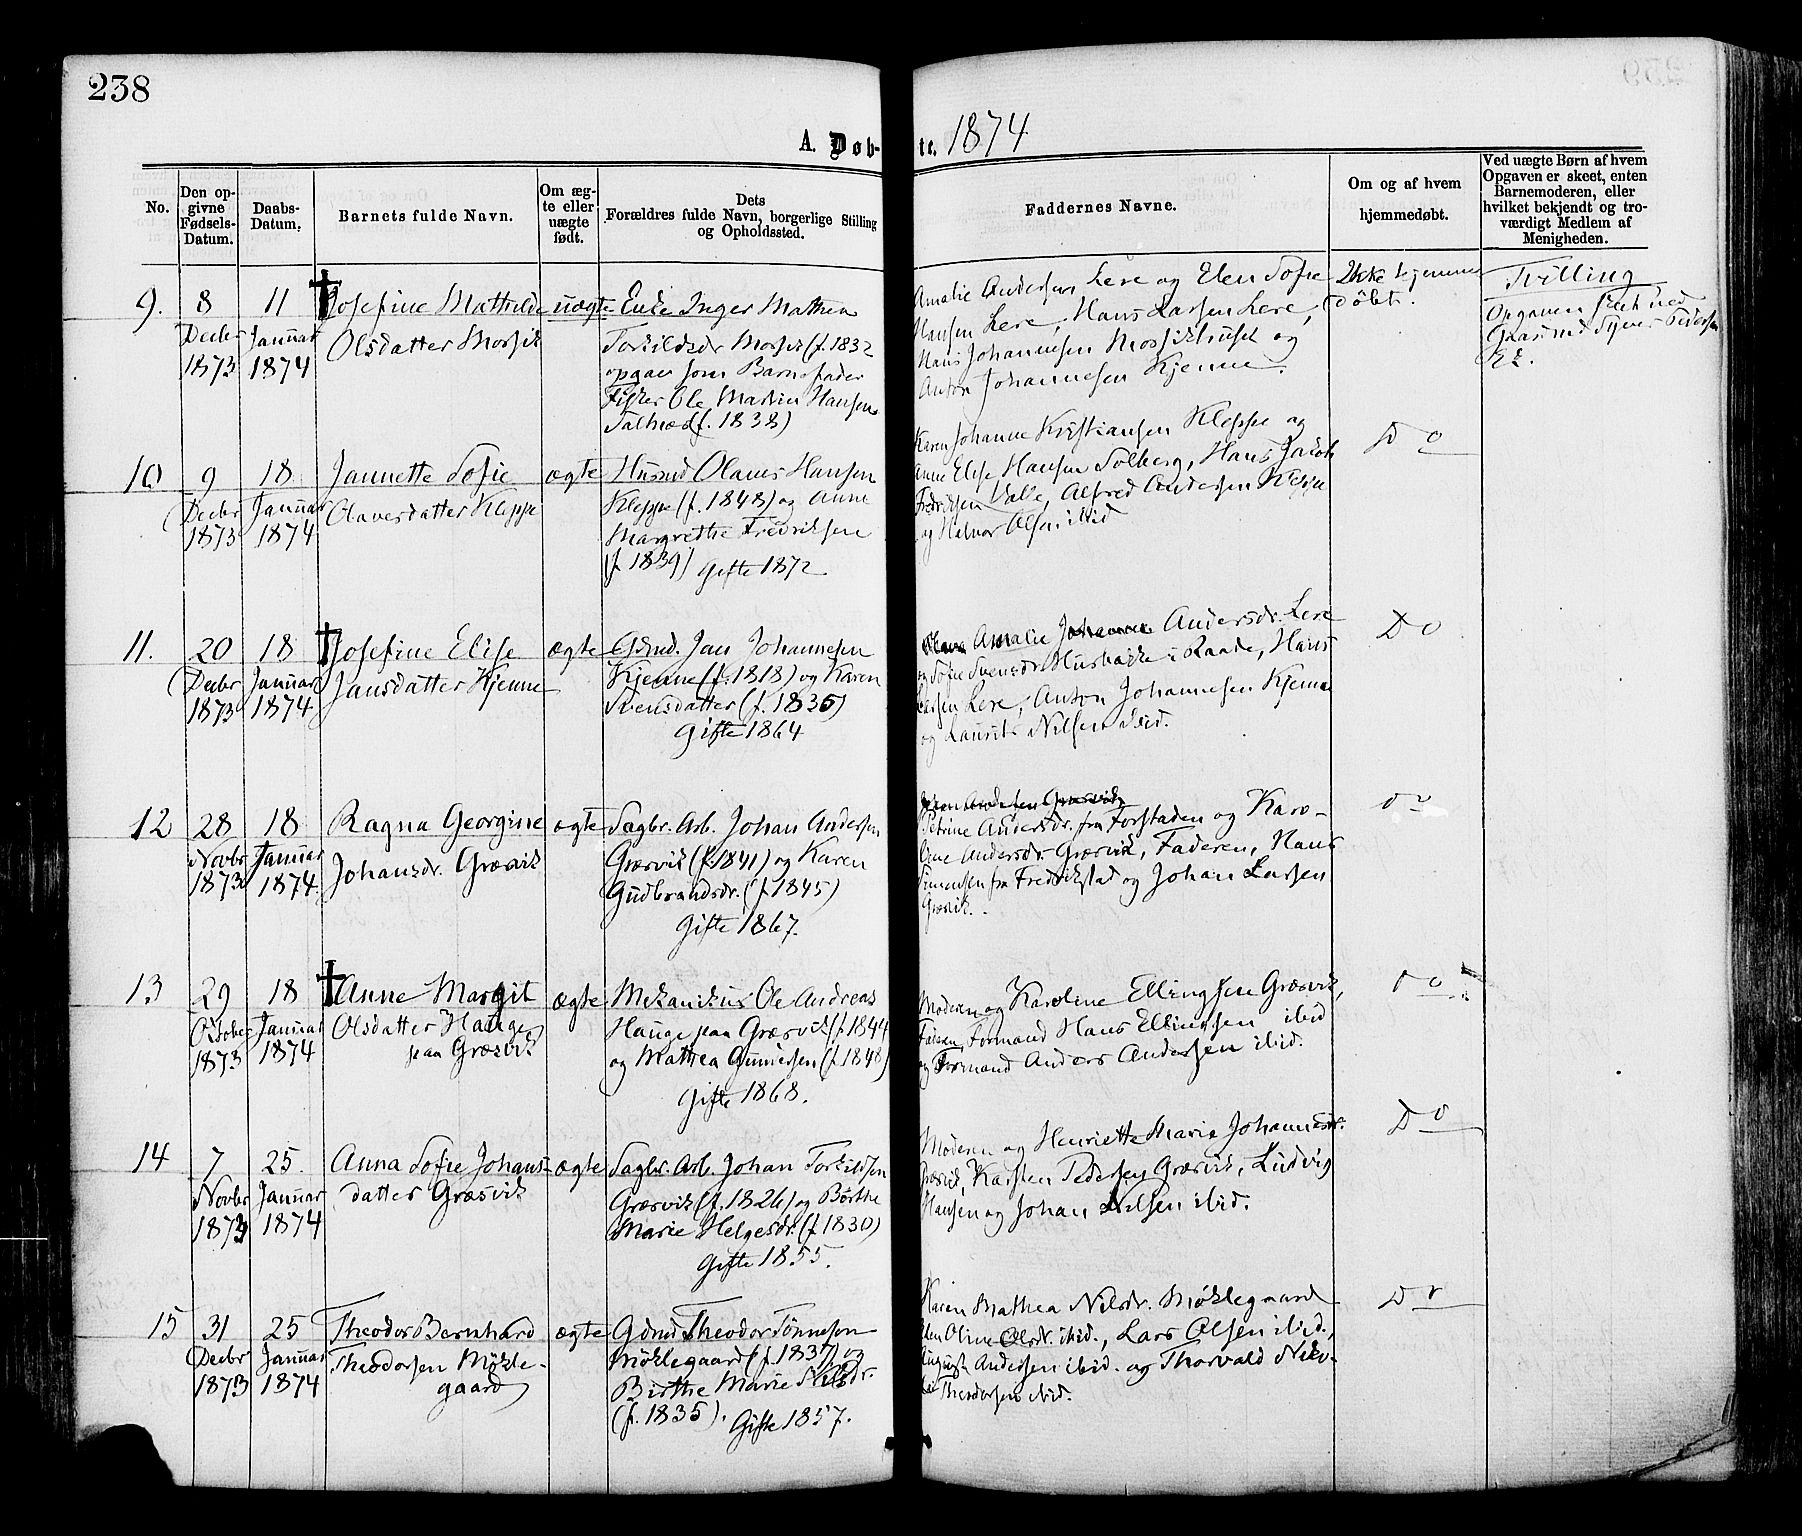 238
A. Døb-
te. 1874
No.
Den op-
givne
Fødsels-
Datum.
Daabs-
Datum.
Barnets fulde Navn.
Om æg-
te eller
uægte
født.
Dets
Forældres fulde Navn, borgerlige Stilling
og Opholdssted.
Faddernes Navne.
Om og af hvem
hjemmedøbt.
Ved uægte Børn af hvem
Opgaven er skeet, enten
Barnemoderen, eller
hvilket bekjendt og tro-
værdigt Medlem af
Menigheden.
9.
8
Decbr
1873
11
Januar
1874
Josefine Mathilde
Olsdatter
uægte
Enke Inger Mathea
Torkildsdr (f. 1832
opgaer som Barnefader
Fisker Ole Martin Hansen
(f. 1838)
Amalie Andersen Lere og Elen Sofie
Hansen Lere, Hans Larsen Lere,
Hans Johannesen og
Anton Johannesen Kjenne.
Ikke hjemme
døbt.
Tvilling
Opgaven skeet ved
10
9
Decbr
1873
18
Januar
1874
Jannette Sofie
Olavesdatter Kleppe
ægte
Husmd Olaves Hansen
Kleppe (f. 1848) og Anne
Margrethe Fredriksen
(f. 1839) Gifte 1872
Karen Johanne Kristiansen Kleppe og
Anne Elise Hansen Solberg, Hans Jakob
Fredriksen Valle, Alfred Andersen Kleppe
og Halvor Olsen ibid
Do
11.
20
Decbr
1873
18
Januar
1874
Josefine Elise
Jansdatter Kjenne
ægte
Gdmd. Jan Johannesen
Kjenne (f. 1818) og Karen
Svensdatter (f. 1835)
Gifte 1864
Amalie Andersdr. Lere
og Sofie Svensdr. i Raade, Hans
Larsen Lere, Anton Johannesen Kjenne
og Laurits Nilsen ibid.
Do
12
28
Novbr
1873
18
Januar
1874
Ragna Georgine
Johansdr. Græsvik
ægte
Sagbr. Arb. Johan Andersen
Græsvik (f. 1841) og Karen
Gudbrandsdr. (f. 1845)
Gifte 1867.
Petrine Andersdr. fra Forstaden og Karo-
line Andersdr. Græsvik, Faderen, Hans
Simensen fra Fredrikstad og Johan Larsen
Græsvik.
Do
13
29
October
1873
18
Januar
1874
Anne Margit
Olsdatter Hauge
paa Græsvik
ægte
Mekanikus Ole Andreas
Hauge paa Græsvik (f. 1844
og Mathea Gunersen (f. 1848)
Gifte 1868.
Modern og Karoline Ellingsen Græsvik,
Fadern, Formand Hans Ellingsen ibid
og Formand Anders Andersen ibid.
Do
14
7
Novbr
1873
25.
Januar
1874
Anna Sofie Johans-
datter Græsvik
ægte
Sagbr. Arb. Johan Torkildsen
Græsvik (f. 1826) og Børthe
Marie Helgesdr. (f. 1830)
Gifte 1855.
Moderen og Henriette Marie Johannesdr.
Græsvik, Karsten Pedersen Græsvik, Ludvig
Hansen og Johan Nilsen ibid.
Do
15
31
Decbr
1873
25
Januar
1874
Theodor Bernhard
Theodorsen Mökle-
gaard
ægte
Gdmd Theodor Tønnesen
Möklegaard (f. 1837) og
Birthe Marie Nilsdr.
(f. 1835). Gifte 1857.
Karen Mathea Nilsdr. Möklegaard
Elen Oline Olsdr. ibid., Lars Olsen ibid.,
August Andersen ibid. og Thorvald Niko-
lai Theodorsen ibid.
Do